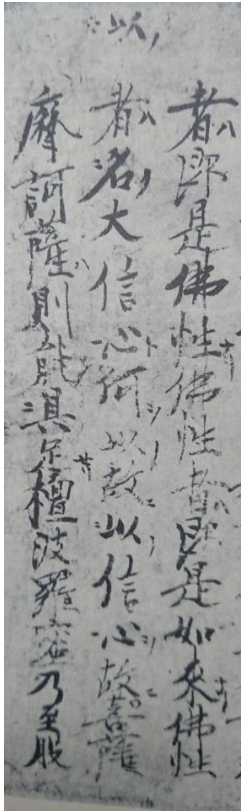 以
者即是佛性佛性者即是如來佛性
者名大信心何以故以信心故菩薩
摩訶薩則能具足檀波羅蜜乃至般